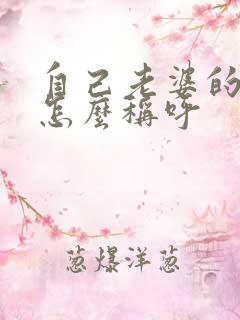 自己老婆的
怎麼稱呼
葱爆洋葱